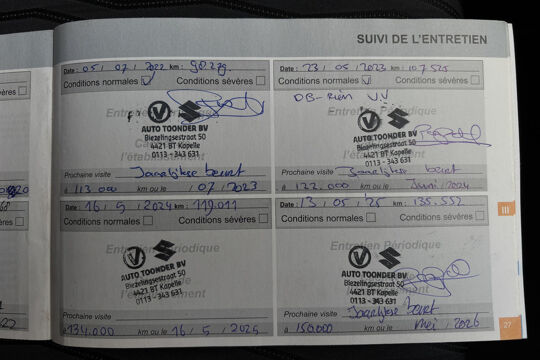 SUIVI DE L'ENTRETIEN
Date : 05 / 07 / 2022 km : 98279
Conditions normales Conditions sévères
Entretien Périodique
AUTO TOONDER BV
Biezelingsestraat 50
4421 BT Kapelle
0113 - 343 631
Prochaine visite Jaarlijkse beurt
à 113 000 km ou le / 07 / 2023
Date : 23 / 05 / 2023 km : 107525
Conditions normales Conditions sévères
AUTO TOONDER BV
Biezelingsestraat 50
4421 BT Kapelle
0113 - 343 631
Prochaine visite Jaarlijkse beurt
à 122.000 km ou le Juni / 2024
Date : 16 / 5 / 2024 km : 119.011
Conditions normales Conditions sévères
Entretien Périodique
AUTO TOONDER BV
Biezelingsestraat 50
4421 BT Kapelle
0113 - 343 631
Prochaine visite
à 134.000 km ou le 16 / 5 / 2025
Date : 13 / 05 / '25 km : 135.552
Conditions normales Conditions sévères
Entretien Périodique
AUTO TOONDER BV
Biezelingsestraat 50
4421 BT Kapelle
0113 - 343 631
Prochaine visite Jaarlijkse beurt
à 150.000 km ou le mei / 2026
III
27